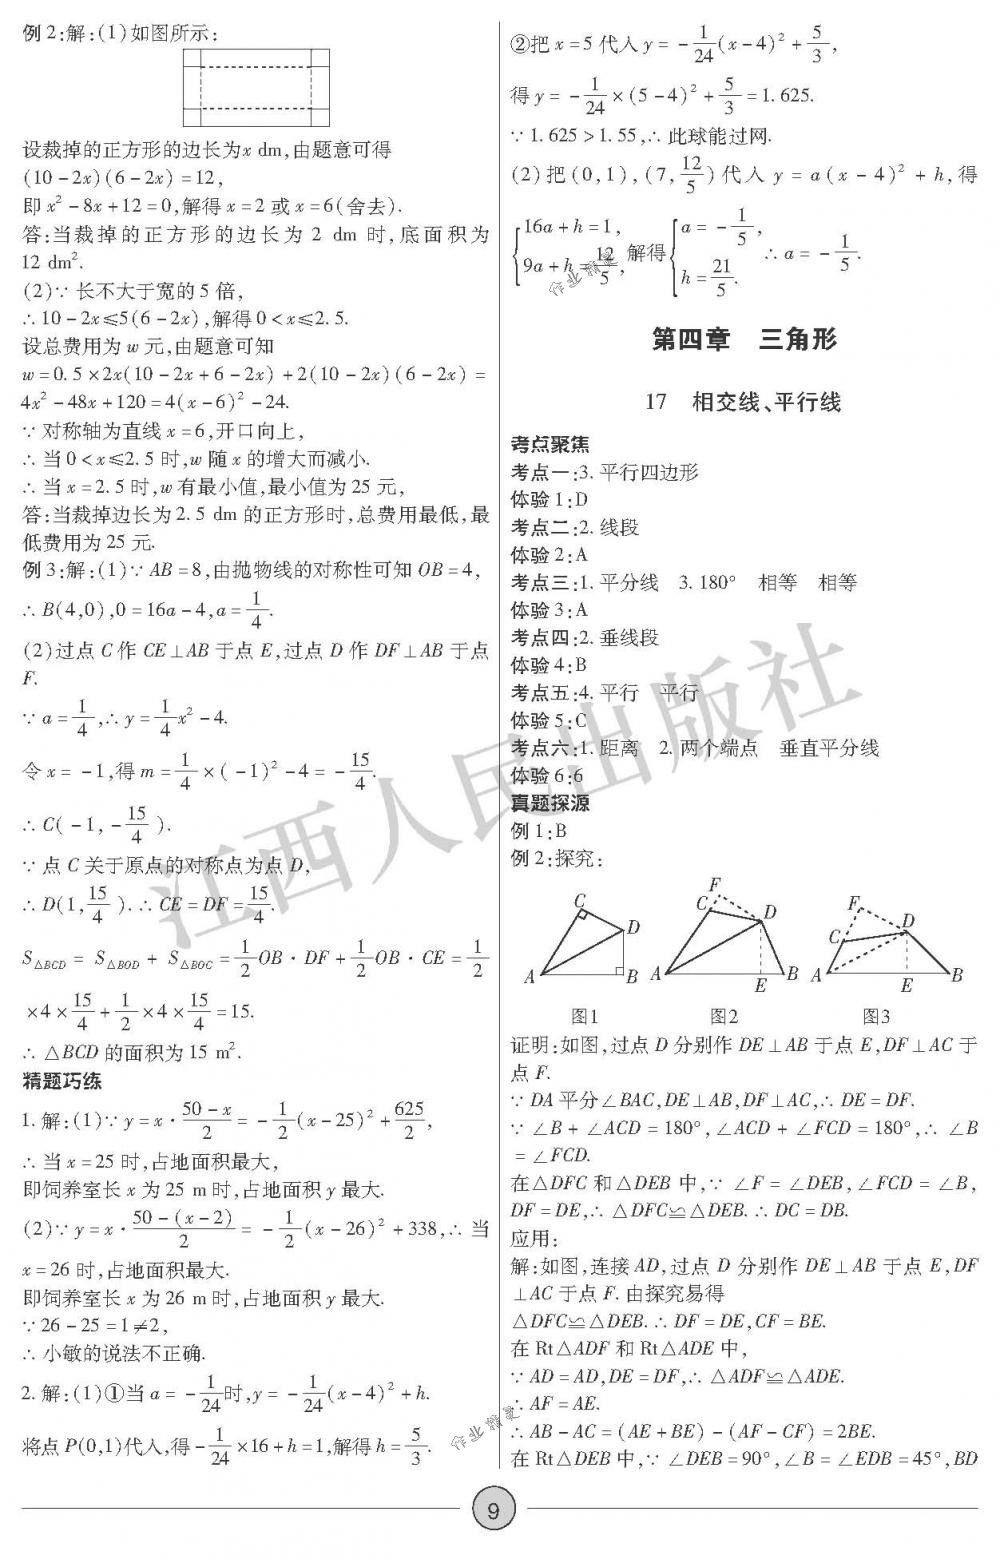 例2:解:(1)如图所示:
设裁掉的正方形的边长为x dm,由题意可得
(10-2x)(6-2x)=12,
即x²-8x+12=0,解得x=2或x=6(舍去).
答:当裁掉的正方形的边长为2 dm时,底面积为
12 dm².
(2)∵长不大于宽的5倍,
∴10-2x≤5(6-2x),解得0<x≤2.5.
设总费用为w元,由题意可知
w=0.5×2x(10-2x+6-2x)+2(10-2x)(6-2x)=
4x²-48x+120=4(x-6)²-24.
∵对称轴为直线x=6,开口向上,
∴当0<x≤2.5时,w随x的增大而减小.
∴当x=2.5时,w有最小值,最小值为25元,
答:当裁掉边长为2.5 dm的正方形时,总费用最低,最
低费用为25元.
例3:解:(1)∵AB=8,由抛物线的对称性可知OB=4,
∴B(4,0),0=16a-4,a=1/4.
(2)过点C作CE⊥AB于点E,过点D作DF⊥AB于点
F.
∵a=1/4,∴y=1/4x²-4.
令x=-1,得m=1/4×(-1)²-4=-15/4.
∴C(-1,-15/4).
∵点C关于原点的对称点为点D,
∴D(1,15/4).∴CE=DF=15/4.
S△BCD=S△BOD+S△BOC=1/2OB·DF+1/2OB·CE=1/2
×4×15/4+1/2×4×15/4=15.
∴△BCD的面积为15 m².
精题巧练
1.解:(1)∵y=x·(50-x)/2=-1/2(x-25)²+625/2,
∴当x=25时,占地面积最大,
即饲养室长x为25 m时,占地面积y最大.
(2)∵y=x·(50-(x-2))/2=-1/2(x-26)²+338,∴当
x=26时,占地面积最大.
即饲养室长x为26 m时,占地面积y最大.
∵26-25=1≠2,
∴小敏的说法不正确.
2.解:(1)①当a=-1/24时,y=-1/24(x-4)²+h.
将点P(0,1)代入,得-1/24×16+h=1,解得h=5/3.
②把x=5代入y=-1/24(x-4)²+5/3,
得y=-1/24×(5-4)²+5/3=1.625.
∵1.625>1.55,∴此球能过网.
(2)把(0,1),(7,12/5)代入y=a(x-4)²+h,得
{16a+h=1, 9a+h=12/5, 解得{a=-1/5, h=21/5. ∴a=-1/5.
第四章 三角形
17 相交线、平行线
考点聚焦
考点一:3.平行四边形
体验1:D
考点二:2.线段
体验2:A
考点三:1.平分线 3.180° 相等 相等
体验3:A
考点四:2.垂线段
体验4:B
考点五:4.平行 平行
体验5:C
考点六:1.距离 2.两个端点 垂直平分线
体验6:6
真题探源
例1:B
例2:探究:
C D A B
F C D A E B
F C D A E B
图1 图2 图3
证明:如图,过点D分别作DE⊥AB于点E,DF⊥AC于
点F.
∵DA平分∠BAC,DE⊥AB,DF⊥AC,∴DE=DF.
∵∠B+∠ACD=180°,∠ACD+∠FCD=180°,∴∠B
=∠FCD.
在△DFC和△DEB中,∵∠F=∠DEB,∠FCD=∠B,
DF=DE,∴△DFC≌△DEB.∴DC=DB.
应用:
解:如图,连接AD,过点D分别作DE⊥AB于点E,DF
⊥AC于点F.由探究易得
△DFC≌△DEB.∴DF=DE,CF=BE.
在Rt△ADF和Rt△ADE中,
∵AD=AD,DE=DF,∴△ADF≌△ADE.
∴AF=AE.
∴AB-AC=(AE+BE)-(AF-CF)=2BE.
在Rt△DEB中,∵∠DEB=90°,∠B=∠EDB=45°,BD
9
江西人民出版社
作业精灵
作业精灵